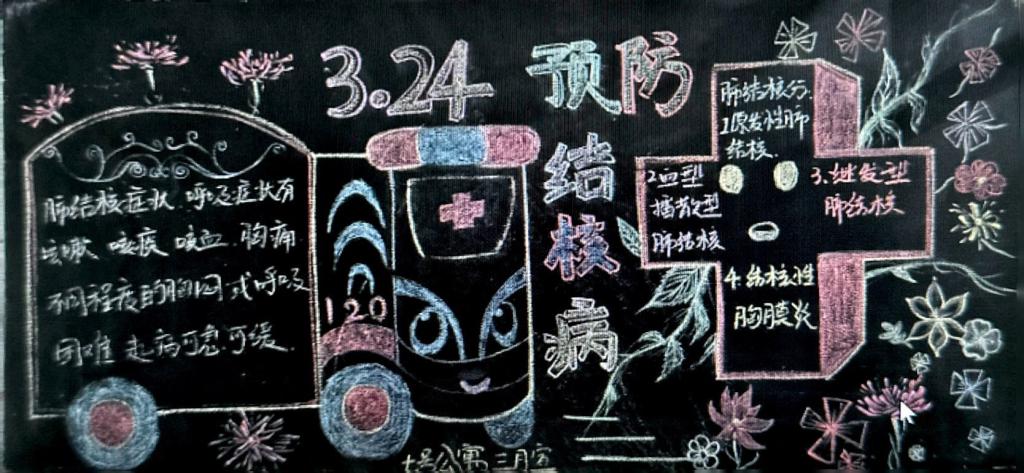 3.24 预防
结
核
病
肺结核症状 呼吸症状有
咳嗽 咳痰 咳血 胸痛
不同程度的胸闷或呼吸
困难 起病可急可缓.
120
肺结核分.
1原发性肺
结核.
2血型
播散型
肺结核
3.继发型
肺结核
4.结核性
胸膜炎
公寓